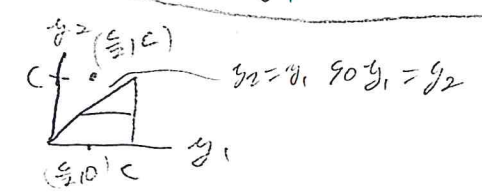 y2
(c/2, c)
c
y2 = y1 so y1 = y2
(c/2, 0) c
y1